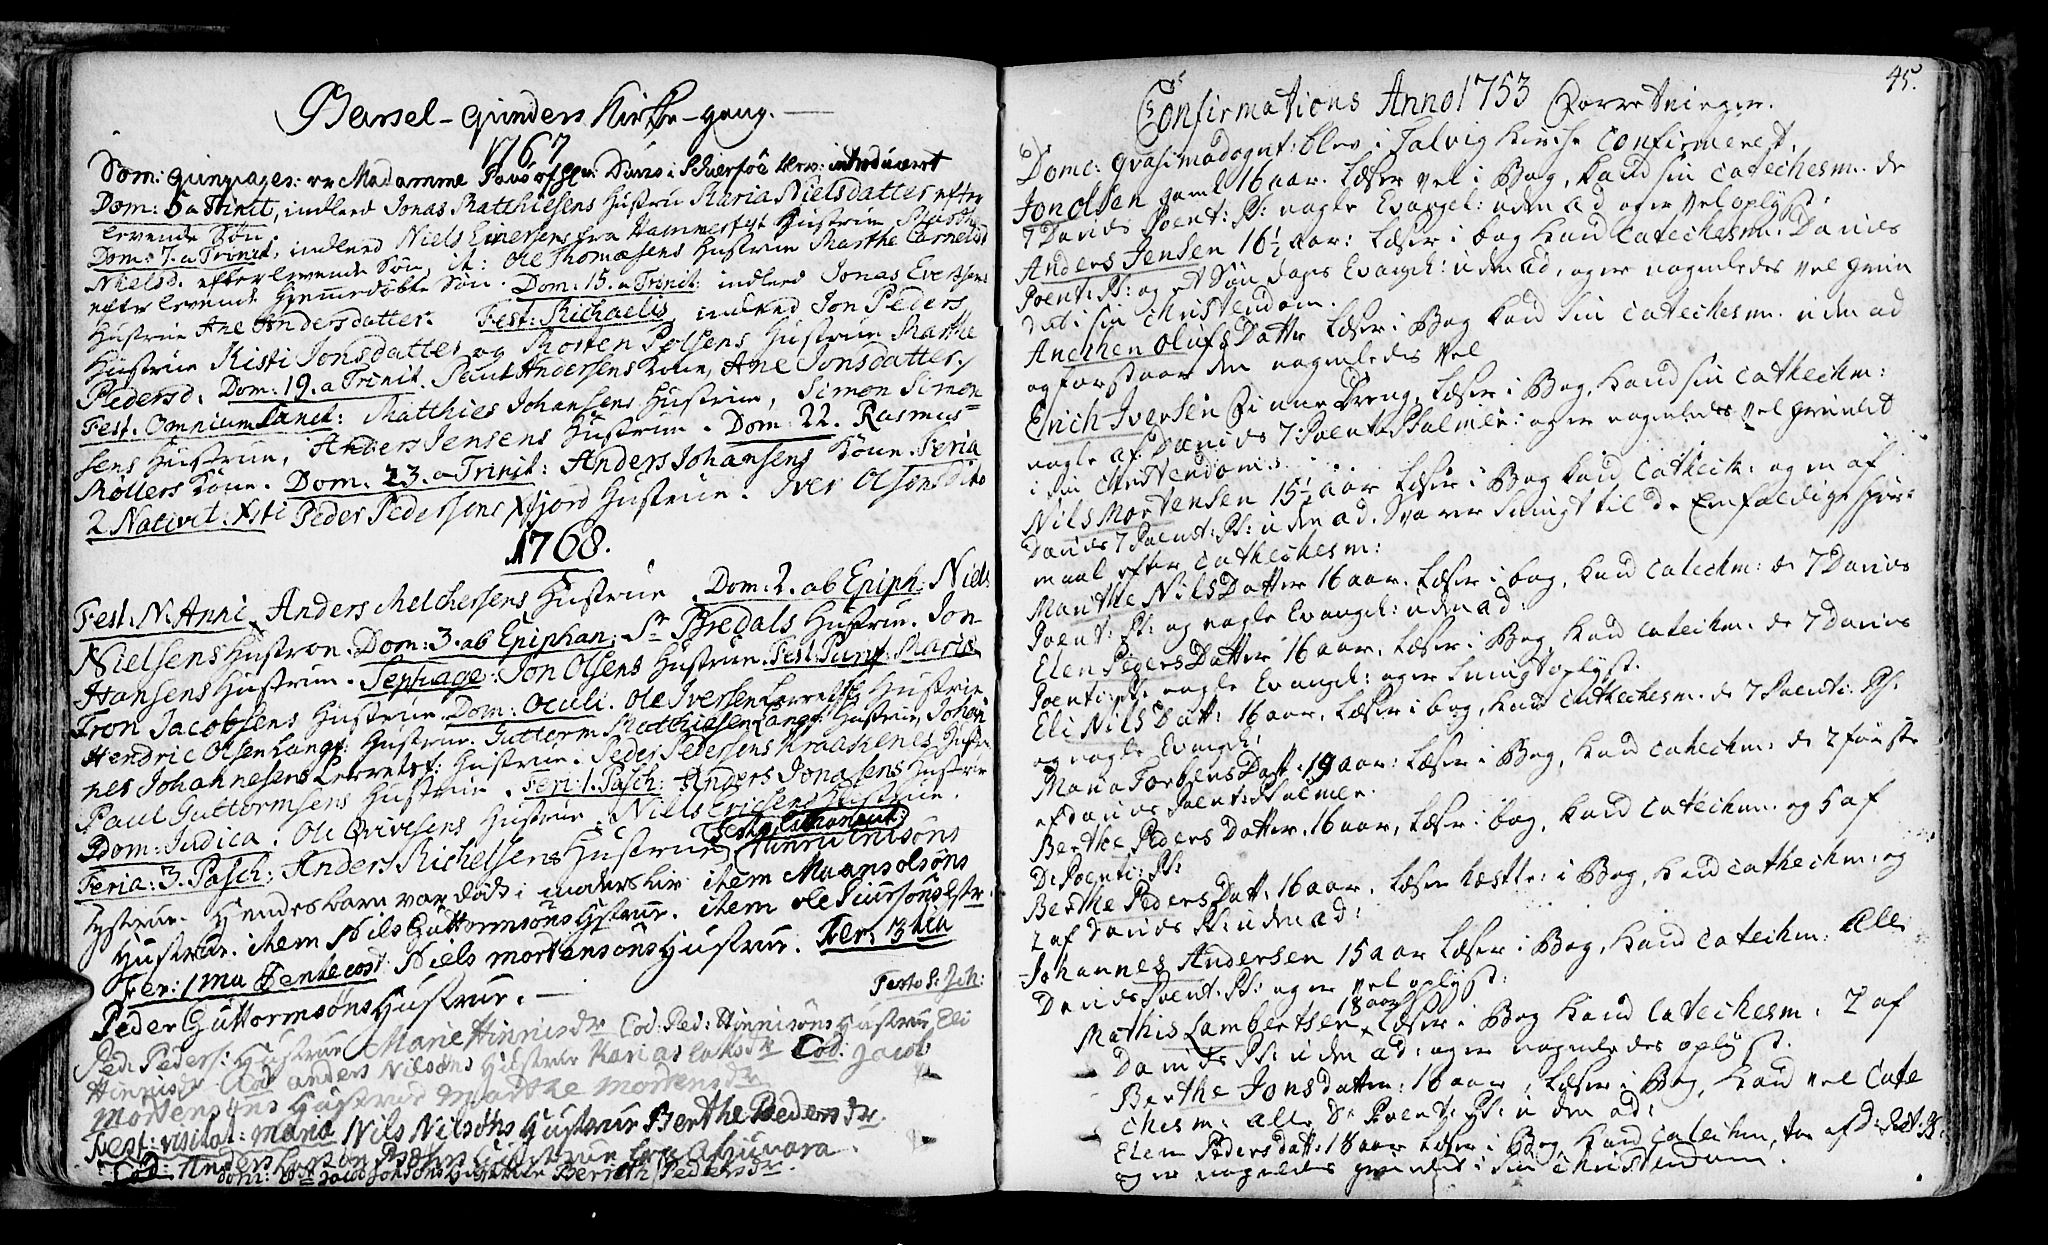 Barsel-qvinders Kirke-gang.
1767
Dom: qvinquages: var Madamme introduceret
Dom: 5 a Trinit, indled Jonas Matthiesens Hustru Maria Nielsdatter efter
levende Søn.
Dom: 7. a Trinit. indled Niels Einersens fra Hammerfest Hustrue Marthe
Nielsd. efterlevende Søn, it: Ole Thomæsens Hustrue Marthe
efterlevende Hiemmedøbte Søn. Dom: 15. a Trinit: indled Jonas Evertsens
Hustrue Ane Andersdatter. Fest: Michaelis, indled Jon Peders
Hustrue Kisti Jonsdatter og Morten Polsens Hustrue Marthe
Pedersd. Dom: 19. a Trinit. Paul Andersens Kone, Ane Jonsdatter.
Fest. Omnium Sanct: Matthies Johansens Hustrue, Simon Simon=
sens Hustrue, Anders Jensens Hustrue. Dom: 22. Rasmus
Møllers Kone. Dom: 23. a Trinit: Anders Johansens Kone. Feria
2 Nativit: Xsti Peder Pedersens Hustrue. Iver Olsens dito
1768.
Fest. N. Anni. Anders Melchersens Hustrue. Dom: 2. ab Epiph: Niels
Nielsens Hustroe. Dom: 3. ab Epiphan: Sr Bredals Hustrue. Jon
Hansens Hustrue. Septuage: Jon Olsens Hustrue. Fest. Purif: Mariæ
Tron Jacobsens Hustrue. Dom: Oculi. Ole Iversen Hustrue
Hendric Olsen Langf: Hustrue. Guttorm Matthiesen Langf: Hustrue, Johan
nes Johannesens Hustrue. Peder Pedersens Kraakenes Hustru
Paul Guttormsens Hustrue. Feri: 1. Pasch: Anders Jonasens Hustrue
Dom: Judica. Ole Hustrue. Niels Erichsens Hustrue.
Feria: 3. Pasch: Anders Michelsens Hustrue
Hustrue. Hendes barn var død i moders liv. item Maans olsøns
Hustrue. item Niels Guttormsøns Hustrue. item ole Hstr
Fer: 1ma Pentecost: Niels mortensøns Hustrue. Fer: 3tia
Peder Guttormsøns Hustrue. — Festo S. Joh:
Ped: Peders: Hustrue Marie Hinrisdr Eod: Ped: Hinrisøns Hustrue, Eli
Hinrisdr Eod anders Nilsøns Hustrue Eod: Jacob
Mortensøns Hustrue Marthe Mortensdr
Fest: visitat: Mariæ Nils Nilsøns Hustrue Berthe Pedersdr.
Eod: Anders Hustrue
Hustrue Pedersdr.
45.
Confirmations Anno 1753 Forretninger.
Domc: qvasimodognt: blev i Talvig Kirche Confirmerest,
Jon Olsen gaml 16 aar. Læser vel i Bog, kand sin Catechesm. de
7 Davids Poent: Ps: nogle Evangel: uden ad og er vel oplyst.
Anders Jensen 16½ aar: Læser i bog kand Catechesm. Davids
Poent: Ps: og et Søndags Evangel: uden ad, og er nogenledes vel grun
det i sin Christendom.
Anichen Olufs Datter Læser i Bog kand sin Catechesm. uden ad
og forstaar den nogenledes vel
Erich Iversen Finne Dreng, Læser i Bog, kand sin Catechchm:
nogle af Davids 7 Poent: Psalmer: og er nogenledes vel grundet
i sin Christendom:
Nils Mortensen 15½ aar Læser i Bog kand Catheck: og en af
Davids 7 Poent: Ps: uden ad. Svarer til de Enfoldige spør=
maal efter Catheckesm:
Marithe Nils Datter 16 aar. Læser i bog, kand Catechm: de 7 Davids
Poent: Ps: og nogle Evangel: uden ad.
Elen Peders Datter 16 aar, Læser i Bog, kand Catechm: de 7 Davids
Poenti: Ps: nogle Evangel: og er oplyst.
Eli Nils Datt: 16 aar, Læser i bog, kand Cathechesm. de 7 Poenti: Ps:
og nogle Evangel:
Mana Torbens Datt: 19 aar: Læser i Bog, kand Catechm: de 2 første
af Davids Poent: Psalmer.
Berthe Peders Datter. 16 aar, Læser i bog, kand Catechm. og 5 af
D: Poenti: Ps:
Berthe Peders Datt: 16 aar. Læser i Bog, kand Cathechm: og
2 af Davids Ps: uden ad:
Johannes Andersen 15 aar Læser i Bog, kand Catechm: alle
Davids Poent: Ps: og er vel oplyst:
Mathis Lambertsen 18 aar Læser i Bog kand Catechesm: 2 af
Davids Ps: uden ad: og er nogenledes oplyst.
Berthe Jons datter: 18 aar, Læser i Bog, kand vel Cate
chesm: alle D: Poent: Ps: uden ad:
Elen Peders datt: 18 aar Læser i Bog kand Catechm,
og er nogenledes grundet i sin Christendom.